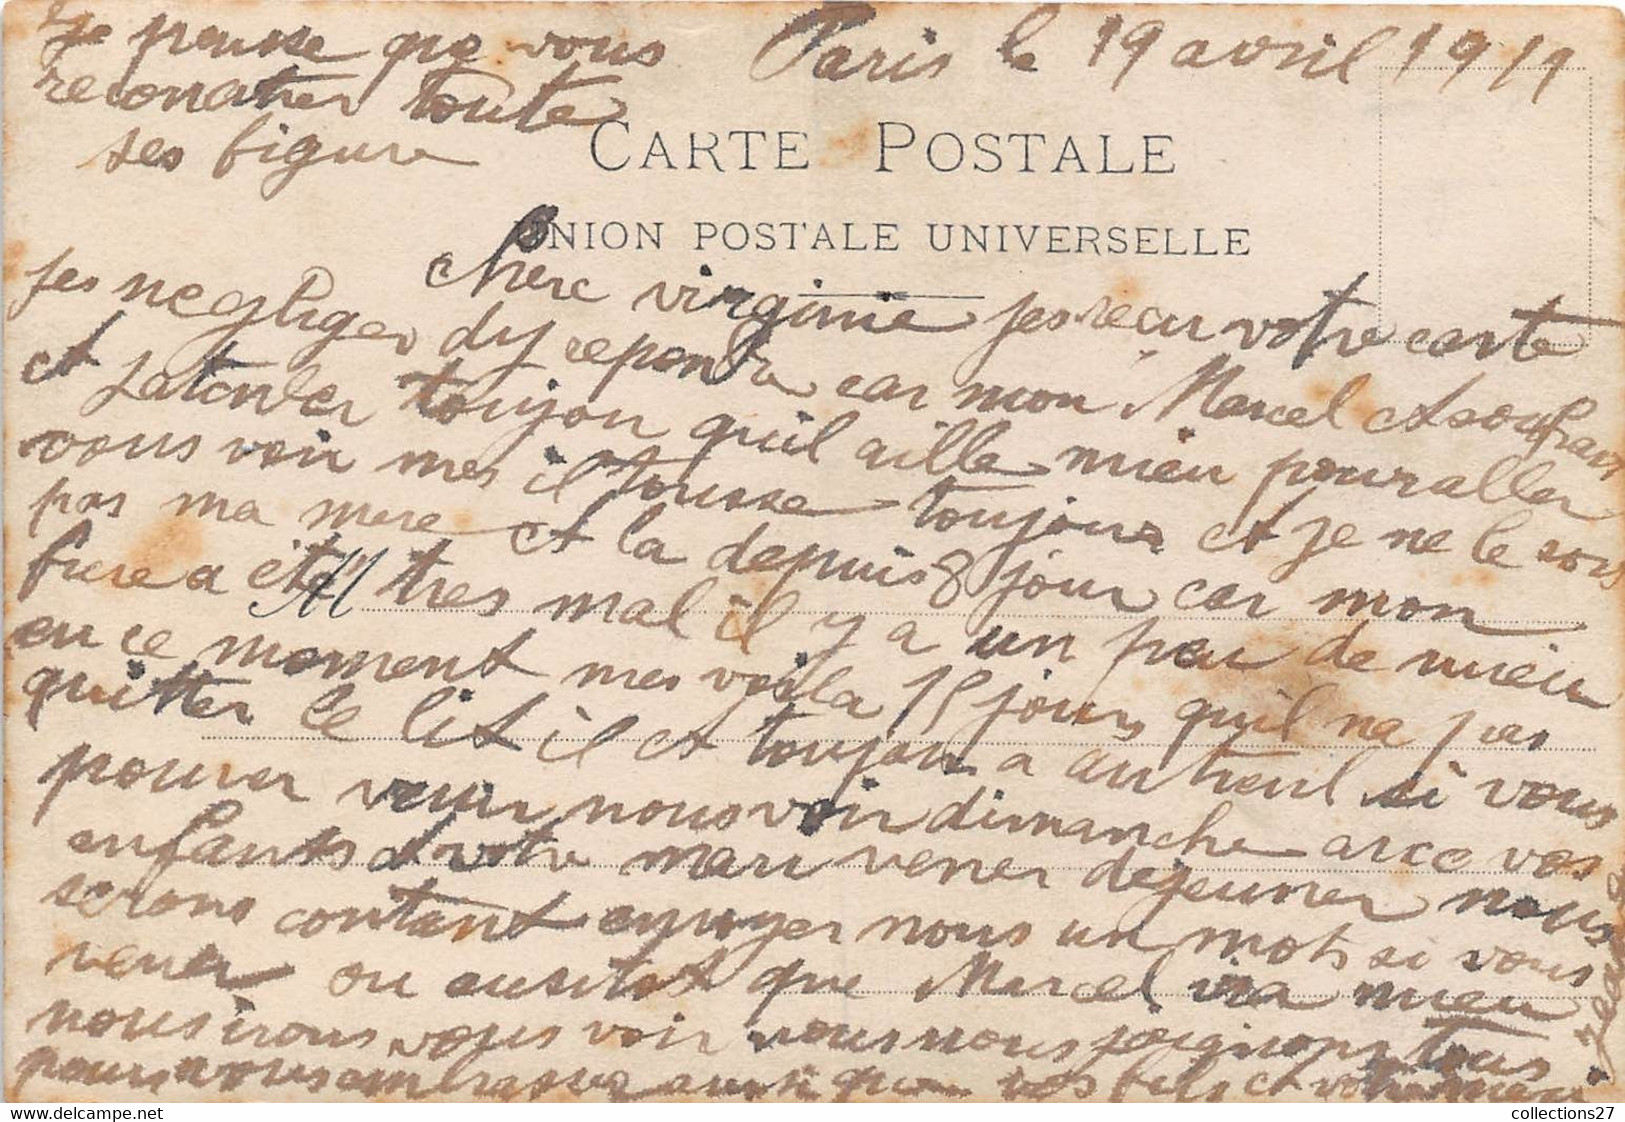 Je pensse que vous
reconatrer toute
ses figure
Paris le 19 avril 1911
CARTE POSTALE
UNION POSTALE UNIVERSELLE
chere virginie jes recu votre carte
jes negliger dy reponda car mon Marcel et soufrans
et jatender toujour quil aille mieu pour aller
vous voir mes il tousse toujour et je ne le sors
pas ma mere et la depuis 8 jour car mon
frere a ete tres mal il y a un peu de mieu
M
en ce moment mes voila 15 jours quil na pas
quitter le lit il et toujour a auteuil si vous
pouver venir nous voir dimanche avec vos
enfants et votre mari vener dejeuner nous
serons contant envoyer nous un mot si vous
vener ou ausitot que Marcel ira mieu
nous irons vous voir nous nous joignons tous
pour vous embrasser ainsi que vos fils et votre mari
collections27